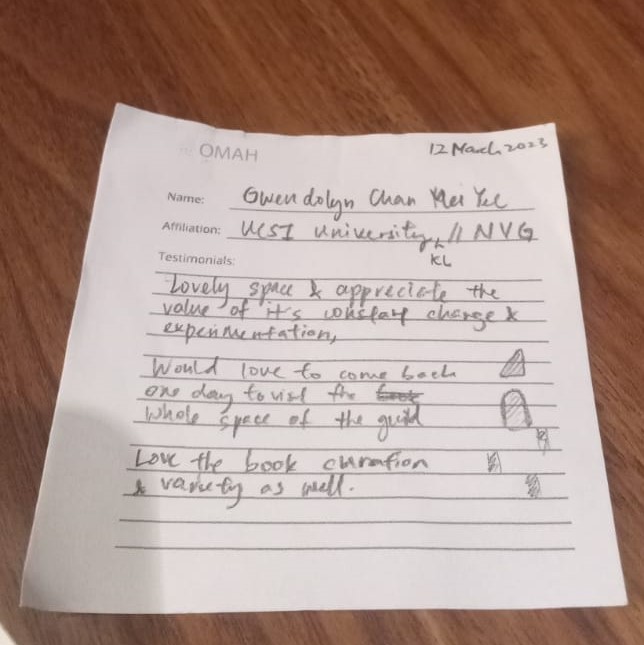 OMAH
12 March 2023
Name: Gwendolyn Chan Mei Yee
Affiliation: UCSI University, KL // NVG
Testimonials:
Lovely space & appreciate the
value of it's constant change &
experimentation,
Would love to come back
one day to visit the
whole space of the guild
Love the book curation
& variety as well.